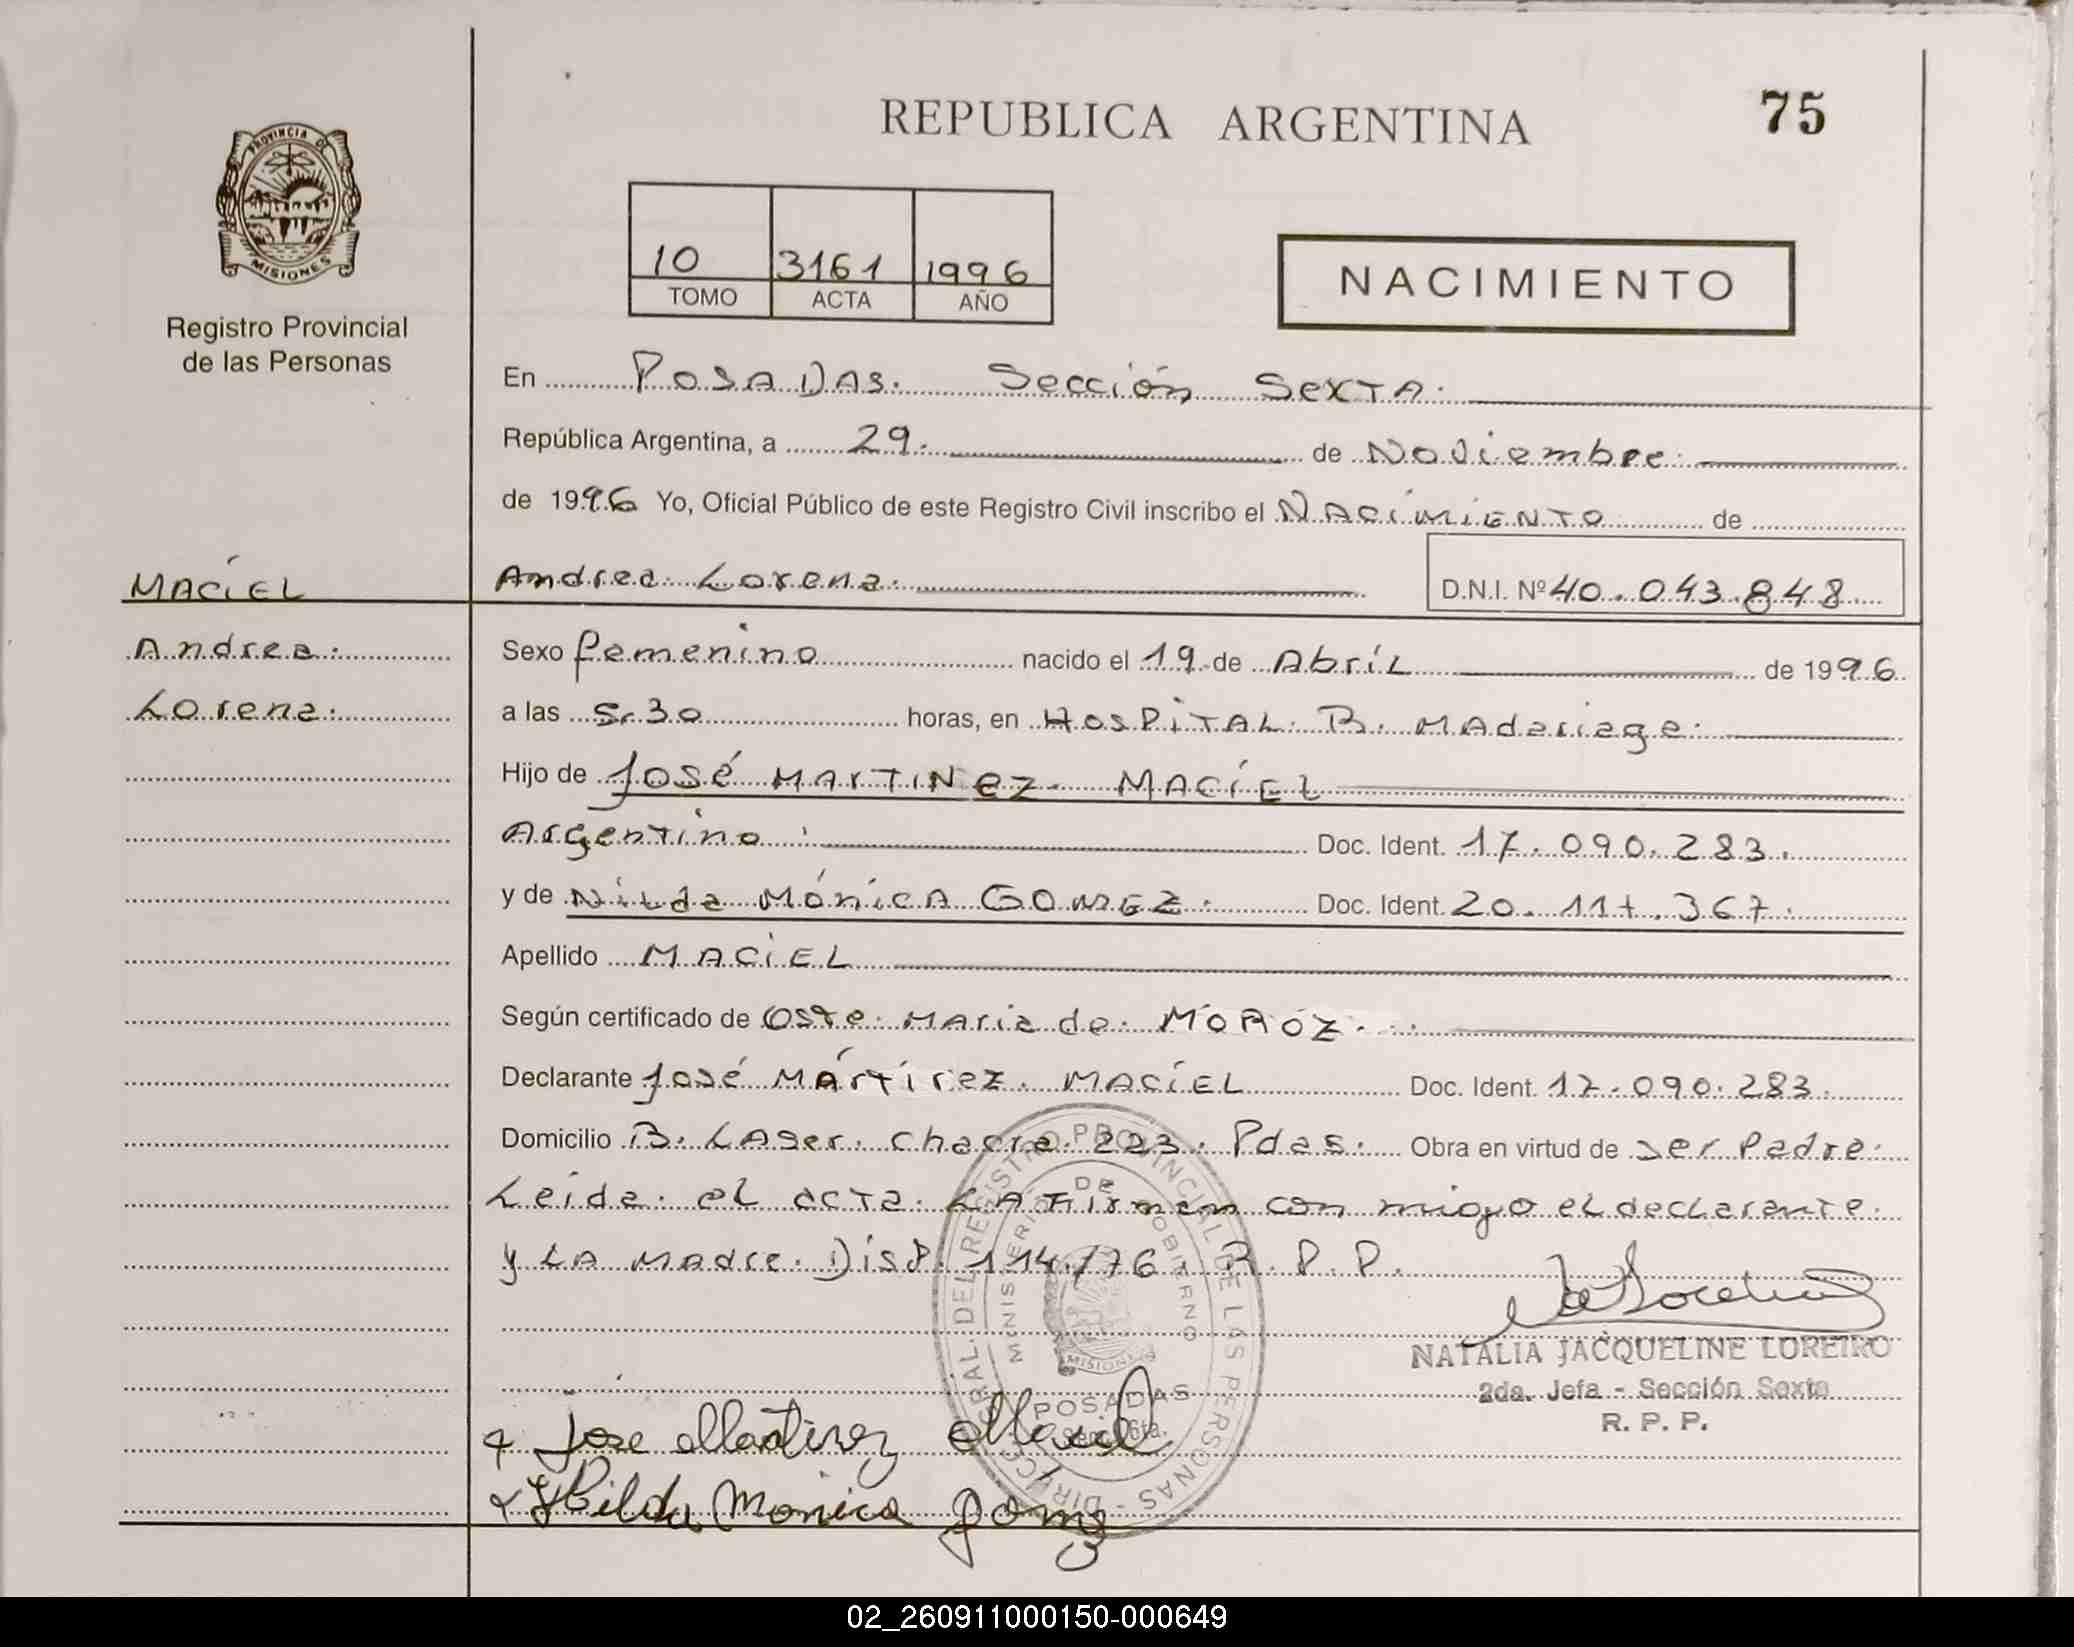 REPUBLICA ARGENTINA
75
PROVINCIA DE
MISIONES
Registro Provincial
de las Personas
10 3161 1996
TOMO ACTA AÑO
NACIMIENTO
En Posadas. Sección Sexta.
República Argentina, a 29. de Noviembre.
de 1996 Yo, Oficial Público de este Registro Civil inscribo el NACIMIENTO de
MACÍEL
Andrea Lorena. D.N.I. Nº 40.043.848
Andrea.
Lorena.
Sexo femenino nacido el 19 de Abríl de 1996
a las 5.30 horas, en HOSPITAL. R. MAdariaga.
Hijo de José MARTINEZ MACÍEL
Argentino. Doc. Ident. 17.090.283.
y de Nilda Mónica GOMEZ. Doc. Ident. 20.117.367.
Apellido MACIEL
Según certificado de Oste. Maria de. MOROZ.
Declarante José Mártirez. MACÍEL Doc. Ident. 17.090.283.
Domicilio B. LASer. Chacra 223. Pdas. Obra en virtud de ser Padre.
Leida. el acta. LA Firman con migo el declarante.
y LA Madre. Disp. 114/76. R.P.P.
NATALIA JACQUELINE LOREIRO
2da. Jefa - Sección Sexta
R. P. P.
DIRECCION GRAL. DEL REGISTRO PROVINCIAL DE LAS PERSONAS
MINISTERIO DE GOBIERNO
MISIONES
POSADAS
Secc. 6ta.
Jose Martirez Maciel
Hilda Monica Gomez
02_260911000150-000649